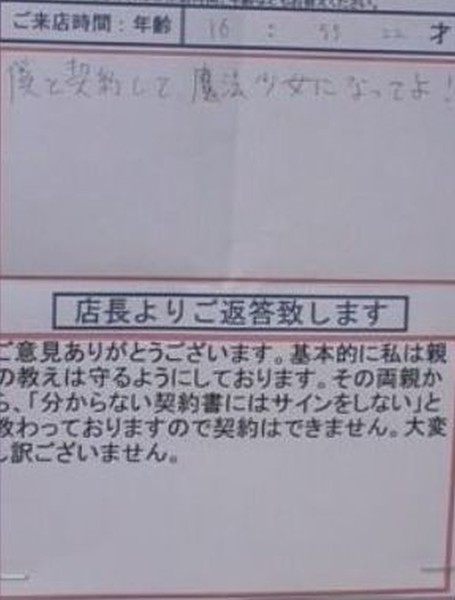 ご来店時間：年齢 16：55 22 才
僕と契約して 魔法少女になってよ！
店長よりご返答致します
ご意見ありがとうございます。基本的に私は親
の教えは守るようにしております。その両親か
ら、「分からない契約書にはサインをしない」と
教わっておりますので契約はできません。大変
し訳ございません。